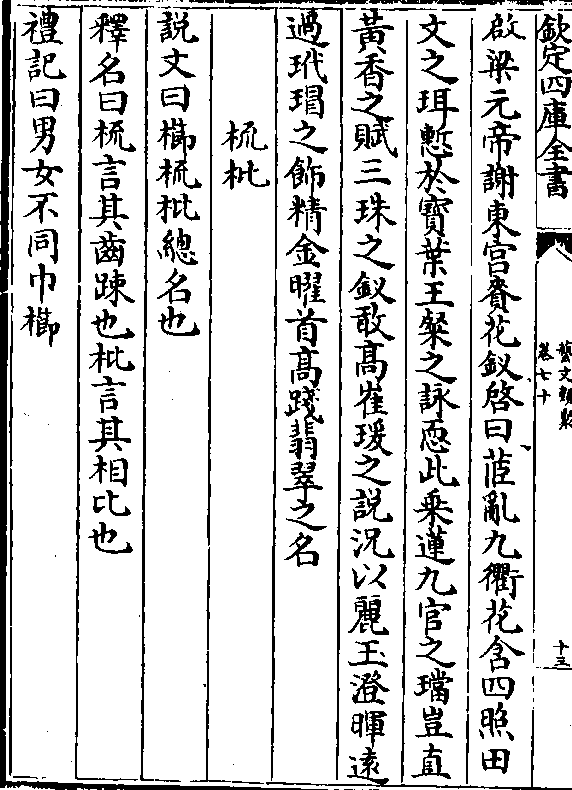 欽定四庫全書
藝文類聚
卷七十
十三
啟梁元帝謝東宫賚花釵啓曰苣亂九衢花含四照田
文之珥慙於寶葉王粲之詠恧此乗蓮九官之璫豈直
黃香之賦三珠之釵敢髙崔瑗之説況以麗玉澄暉遠
過玳瑁之飾精金曜首髙踐翡翠之名
梳枇
説文曰櫛梳枇總名也
釋名曰梳言其齒踈也枇言其相比也
禮記曰男女不同巾櫛